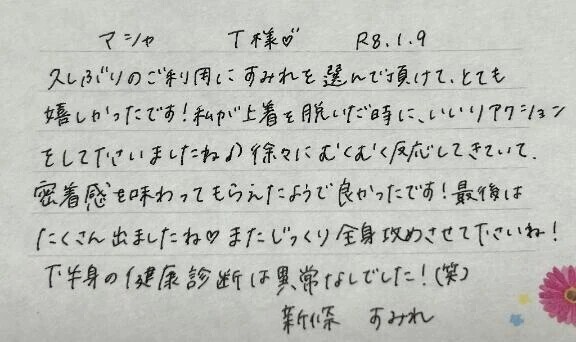 マシャ T様♡ R8.1.9
久しぶりのご利用にすみれを選んで頂けて、とても
嬉しかったです!私が上着を脱いだ時に、いいリアクション
をして下さいましたね♪徐々にむくむく反応してきていて、
密着感を味わってもらえたようで良かったです!最後は
たくさん出ましたね♡またじっくり全身攻めさせて下さいね!
下半身の健康診断は異常なしでした!(笑)
新條 すみれ